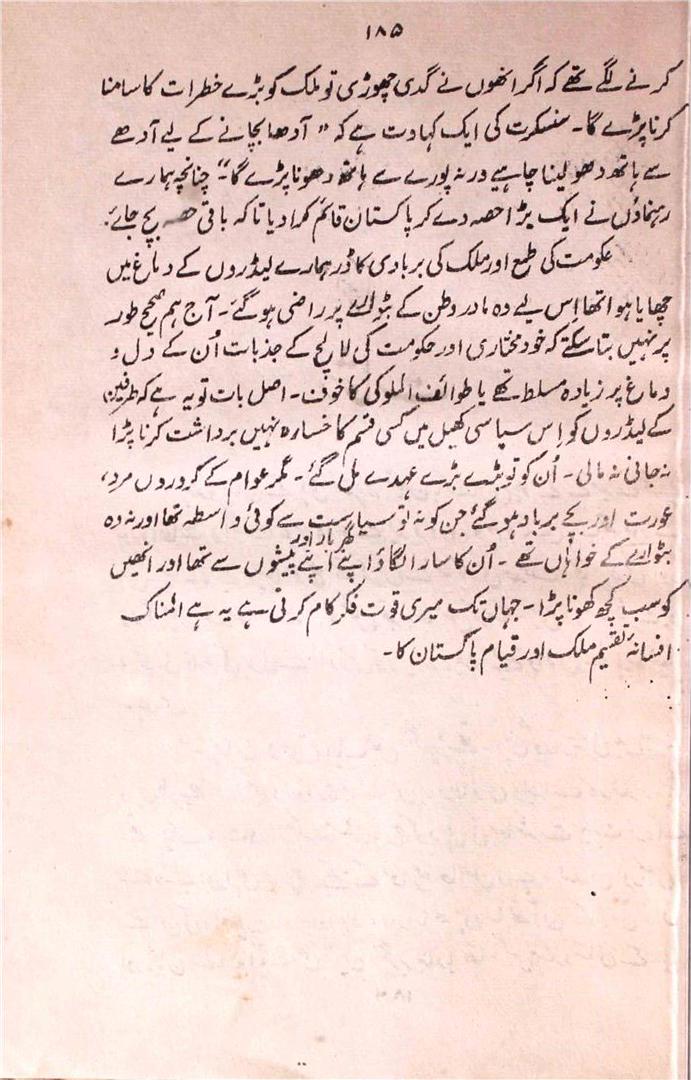 ۱۸۵
کرنے لگے تھے کہ اگر انھوں نے گدی چھوڑی تو ملک کو بڑے خطرات کا سامنا
کرنا پڑے گا۔ سنسکرت کی ایک کہاوت ہے کہ "آدھا بچانے کے لیے آدھے
سے ہاتھ دھو لینا چاہیے ورنہ پورے سے ہاتھ دھونا پڑے گا" چنانچہ ہمارے
رہنماؤں نے ایک بڑا حصہ دے کر پاکستان قائم کرا دیا تاکہ باقی حصہ بچ جائے۔
حکومت کی طمع اور ملک کی بربادی کا ڈر ہمارے لیڈروں کے دماغ میں
چھایا ہوا تھا اِس لیے وہ مادر وطن کے بٹوارے پر راضی ہو گئے۔ آج ہم صحیح طور
پر نہیں بتا سکتے کہ خود مختاری اور حکومت کی لالچ کے جذبات اُن کے دل و
دماغ پر زیادہ مسلط تھے یا طوائف الملوکی کا خوف۔ اصل بات تو یہ ہے کہ طرفین
کے لیڈروں کو اِس سیاسی کھیل میں کسی قسم کا خسارہ نہیں برداشت کرنا پڑا
نہ جانی نہ مالی۔ اُن کو تو بڑے بڑے عہدے مل گئے۔ مگر عوام کے کروروں مرد،
عورت اور بچے برباد ہو گئے جن کو نہ تو سیاست سے کوئی واسطہ تھا اور نہ وہ
بٹوارے کے خواہاں تھے۔ اُن کا سارا لگاؤ اپنے گھر بار اور اپنے پیشوں سے تھا اور انھیں
کو سب کچھ کھونا پڑا۔ جہاں تک میری قوت فکر کام کرتی ہے یہ ہے المناک
افسانہ تقسیم ملک اور قیام پاکستان کا۔